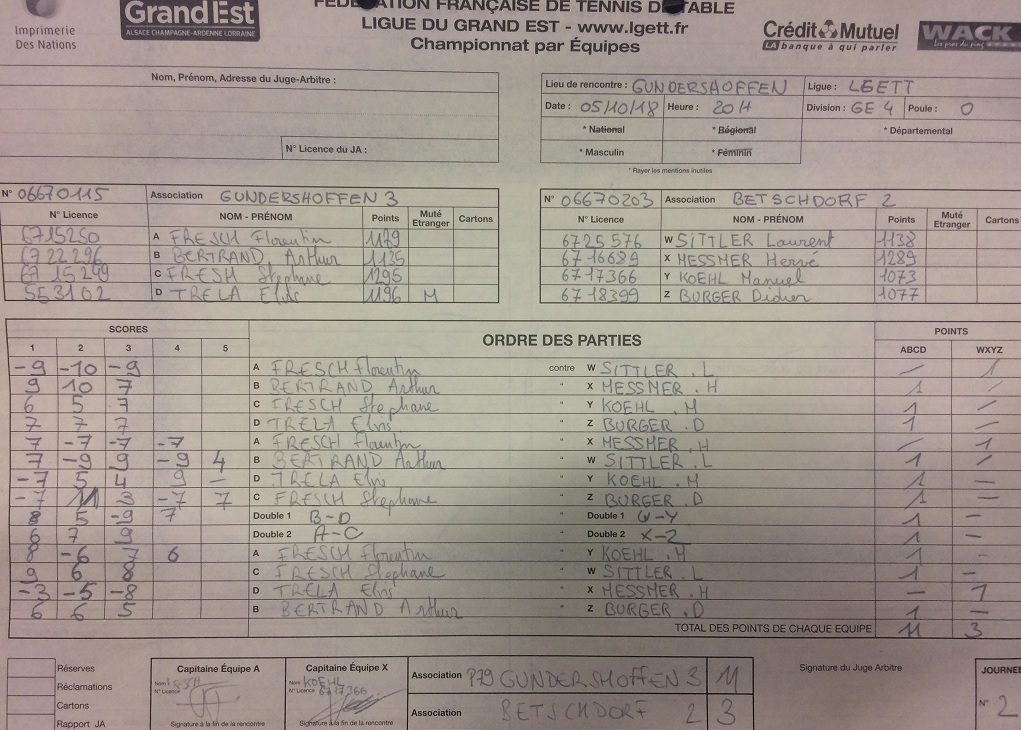 Imprimerie
Des Nations
GrandEst
ALSACE CHAMPAGNE-ARDENNE LORRAINE
FÉDÉRATION FRANÇAISE DE TENNIS DE TABLE
LIGUE DU GRAND EST - www.lgett.fr
Championnat par Équipes
Crédit Mutuel
LA banque à qui parler
WACK
Nom, Prénom, Adresse du Juge-Arbitre :
N° Licence du JA :
Lieu de rencontre : GUNDERSHOFFEN Ligue : LGETT
Date : 05/10/18 Heure : 20H Division : GE 4 Poule : O
* National * Régional * Départemental
* Masculin * Féminin
* Rayer les mentions inutiles
N° 06670115 Association GUNDERSHOFFEN 3
N° Licence NOM - PRÉNOM Points Muté Etranger Cartons
6715250 A FRESCH Florentin 1179
6722296 B BERTRAND, Arthur 1135
67 15 299 C FRESH Stephane 1295
553102 D TRELA Elvis 1196 M
N° 06670203 Association BETSCHDORF 2
N° Licence NOM - PRÉNOM Points Muté Etranger Cartons
6725 576 W SITTLER Laurent 1138
67 16689 X MESSMER Hervé 1289
67-17366 Y KOEHL Manuel 1073
67 18399 Z BURGER Didier 1077
SCORES ORDRE DES PARTIES POINTS
1 2 3 4 5 ABCD WXYZ
-9 -10 -9 A FRESCH Florentin contre W SITTLER . L - 1
9 10 7 B BERTRAND Arthur " X MESSMER . H 1 -
6 5 7 C FRESCH Stephane " Y KOEHL . M 1 -
7 7 7 D TRELA Elvis " Z BURGER . D 1 -
7 -7 -7 -7 A FRESCH Florentin " X MESSMER . H - 1
7 -9 9 -9 4 B BERTRAND Arthur " W SITTLER . L 1 -
-7 5 4 9 - D TRELA Elvis " Y KOEHL . M 1 -
-7 11 3 -7 7 C FRESCH Stephane " Z BURGER . D 1 -
8 5 -9 7 Double 1 B-D " Double 1 W-Y 1 -
6 7 9 Double 2 A-C " Double 2 X-Z 1 -
8 -6 7 6 A FRESCH Florentin " Y KOEHL . M 1 -
9 6 8 C FRESCH Stephane " W SITTLER . L 1 -
-3 -5 -8 D TRELA Elvis " X MESSMER . H - 1
6 6 5 B BERTRAND Arthur " Z BURGER . D 1 -
TOTAL DES POINTS DE CHAQUE EQUIPE 11 3
Réserves
Réclamations
Cartons
Rapport JA
Capitaine Équipe A
Nom
N° Licence
Signature à la fin de la rencontre
Capitaine Équipe X
Nom KOEHL
N° Licence 6717366
Signature à la fin de la rencontre
Association P79 GUNDERSHOFFEN 3 11
Association BETSCHDORF 2 3
Signature du Juge Arbitre
JOURNEE
N° 2